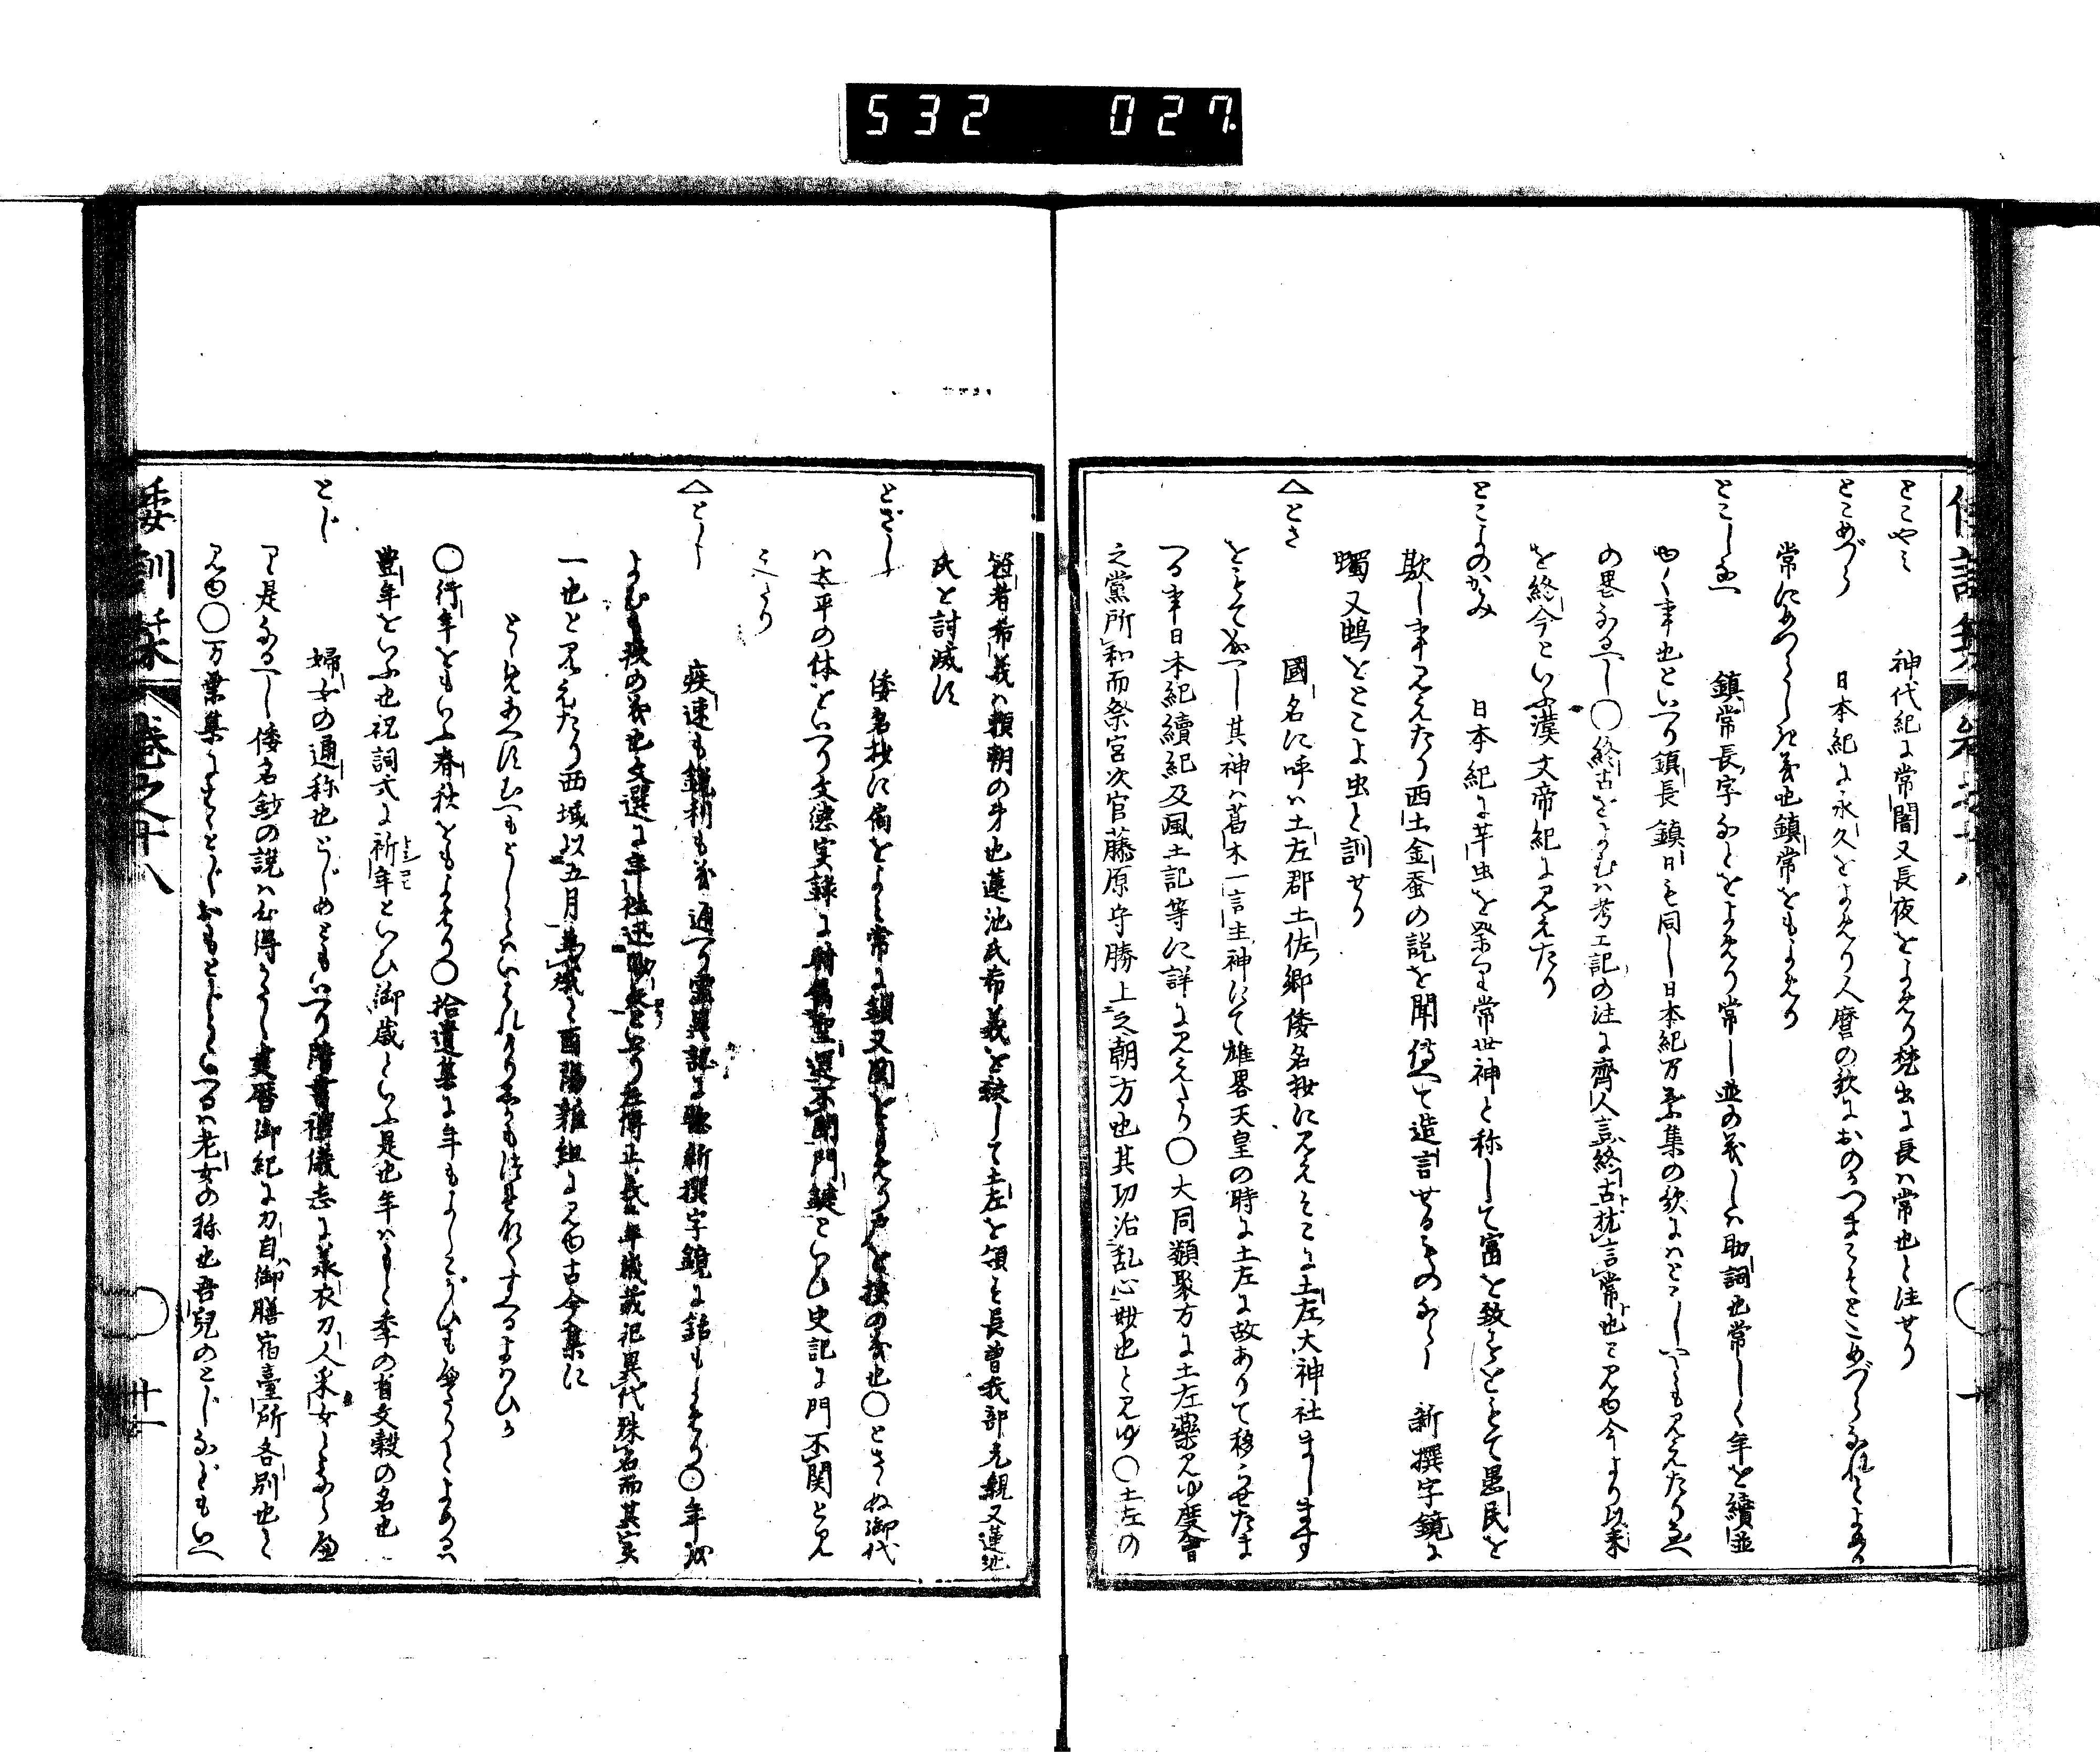 532 027
とこやみ 神代紀に常闇又長夜をよめり 梵出に長ハ常也と注せり
とこめづら 日本紀に永久をよめり人麿の歌におのつまこそとこめづらなれとよめる
常にめづらしき義也鎮常をもよめり
とこしなへ 鎮常長字などをよめり常し並の義しハ助詞也常しく年を續並
ゆく事也といへり鎮長鎮日も同し日本紀万葉集の歌にハとこしへにも見えたりなへ
の畧なるへし〇終古をよむハ考工記の注に齊人言終古猶言常也と見ゆ今より以来
を終今といふ漢文帝紀に見えたり
とこよのかみ 日本紀に芋虫を祭り常世神と称して冨を致すをとて愚民を
欺し事見えたり西土金蚕の説を聞傳へて造言せるものなるへし 新撰字鏡に
蠋又蝎をとこよ虫と訓せり
△とさ 國名に呼ハ土左郡土佐郷倭名抄に見えそこに土左大神社ましますす
をもて也へし其神ハ葛木一言主神にて雄畧天皇の時に土左に故ありて移らせたま
へる事日本紀續紀及風土記等に詳に見えたり〇大同類聚方に土左藥見ゆ度會
之黨所和而祭宮次官藤原守勝上之朝方也其功治乱心妙也と見ゆ〇土左の
冠者希義ハ頼朝の弟也蓮池氏希義を殺して土左を領す長曽我部元親又蓮池
氏を討滅す
とざし 倭名抄に扃をよみ常に鎖又関をよめり戸を挿の義也〇とさゝぬ御代
ハ太平の体といへり文徳実録に射鵠聖還不閉門鍵といひ史記に門不関と見
えたり
△とし 疾速も鋭利も義通へり霊異記に聰新撰字鏡に銛もよめり〇年歳
よむも疾の義也文選に年往迅勁矢といへり左傳正義に年歳載祀異代殊名而其実
一也と見えたり西域以五月為歳と酉陽雑俎に見ゆ古今集に
とゝめあへすむへもとしとハいはれけりしかもつれなくすくるよはひか
〇行年ともいふ春秋をもよめり〇拾遺集に年もよしこがひも得たりとよめるハ
豊年をいふ也祝詞式に祈年といひ御歳といふ是也年ハもと季の省文穀の名也
とじ 婦女の通称也とじめともいへり隋書禮儀志に承衣刀人采女となん
是なるへし倭名鈔の説ハ心得かたし建暦御紀に刀自御膳宿臺所各別也と
見ゆ〇万葉集にはゝとじおもとじといへるハ老女の称也吾兒のとじなどもいへ
倭訓栞 巻之十八 〇 廿一